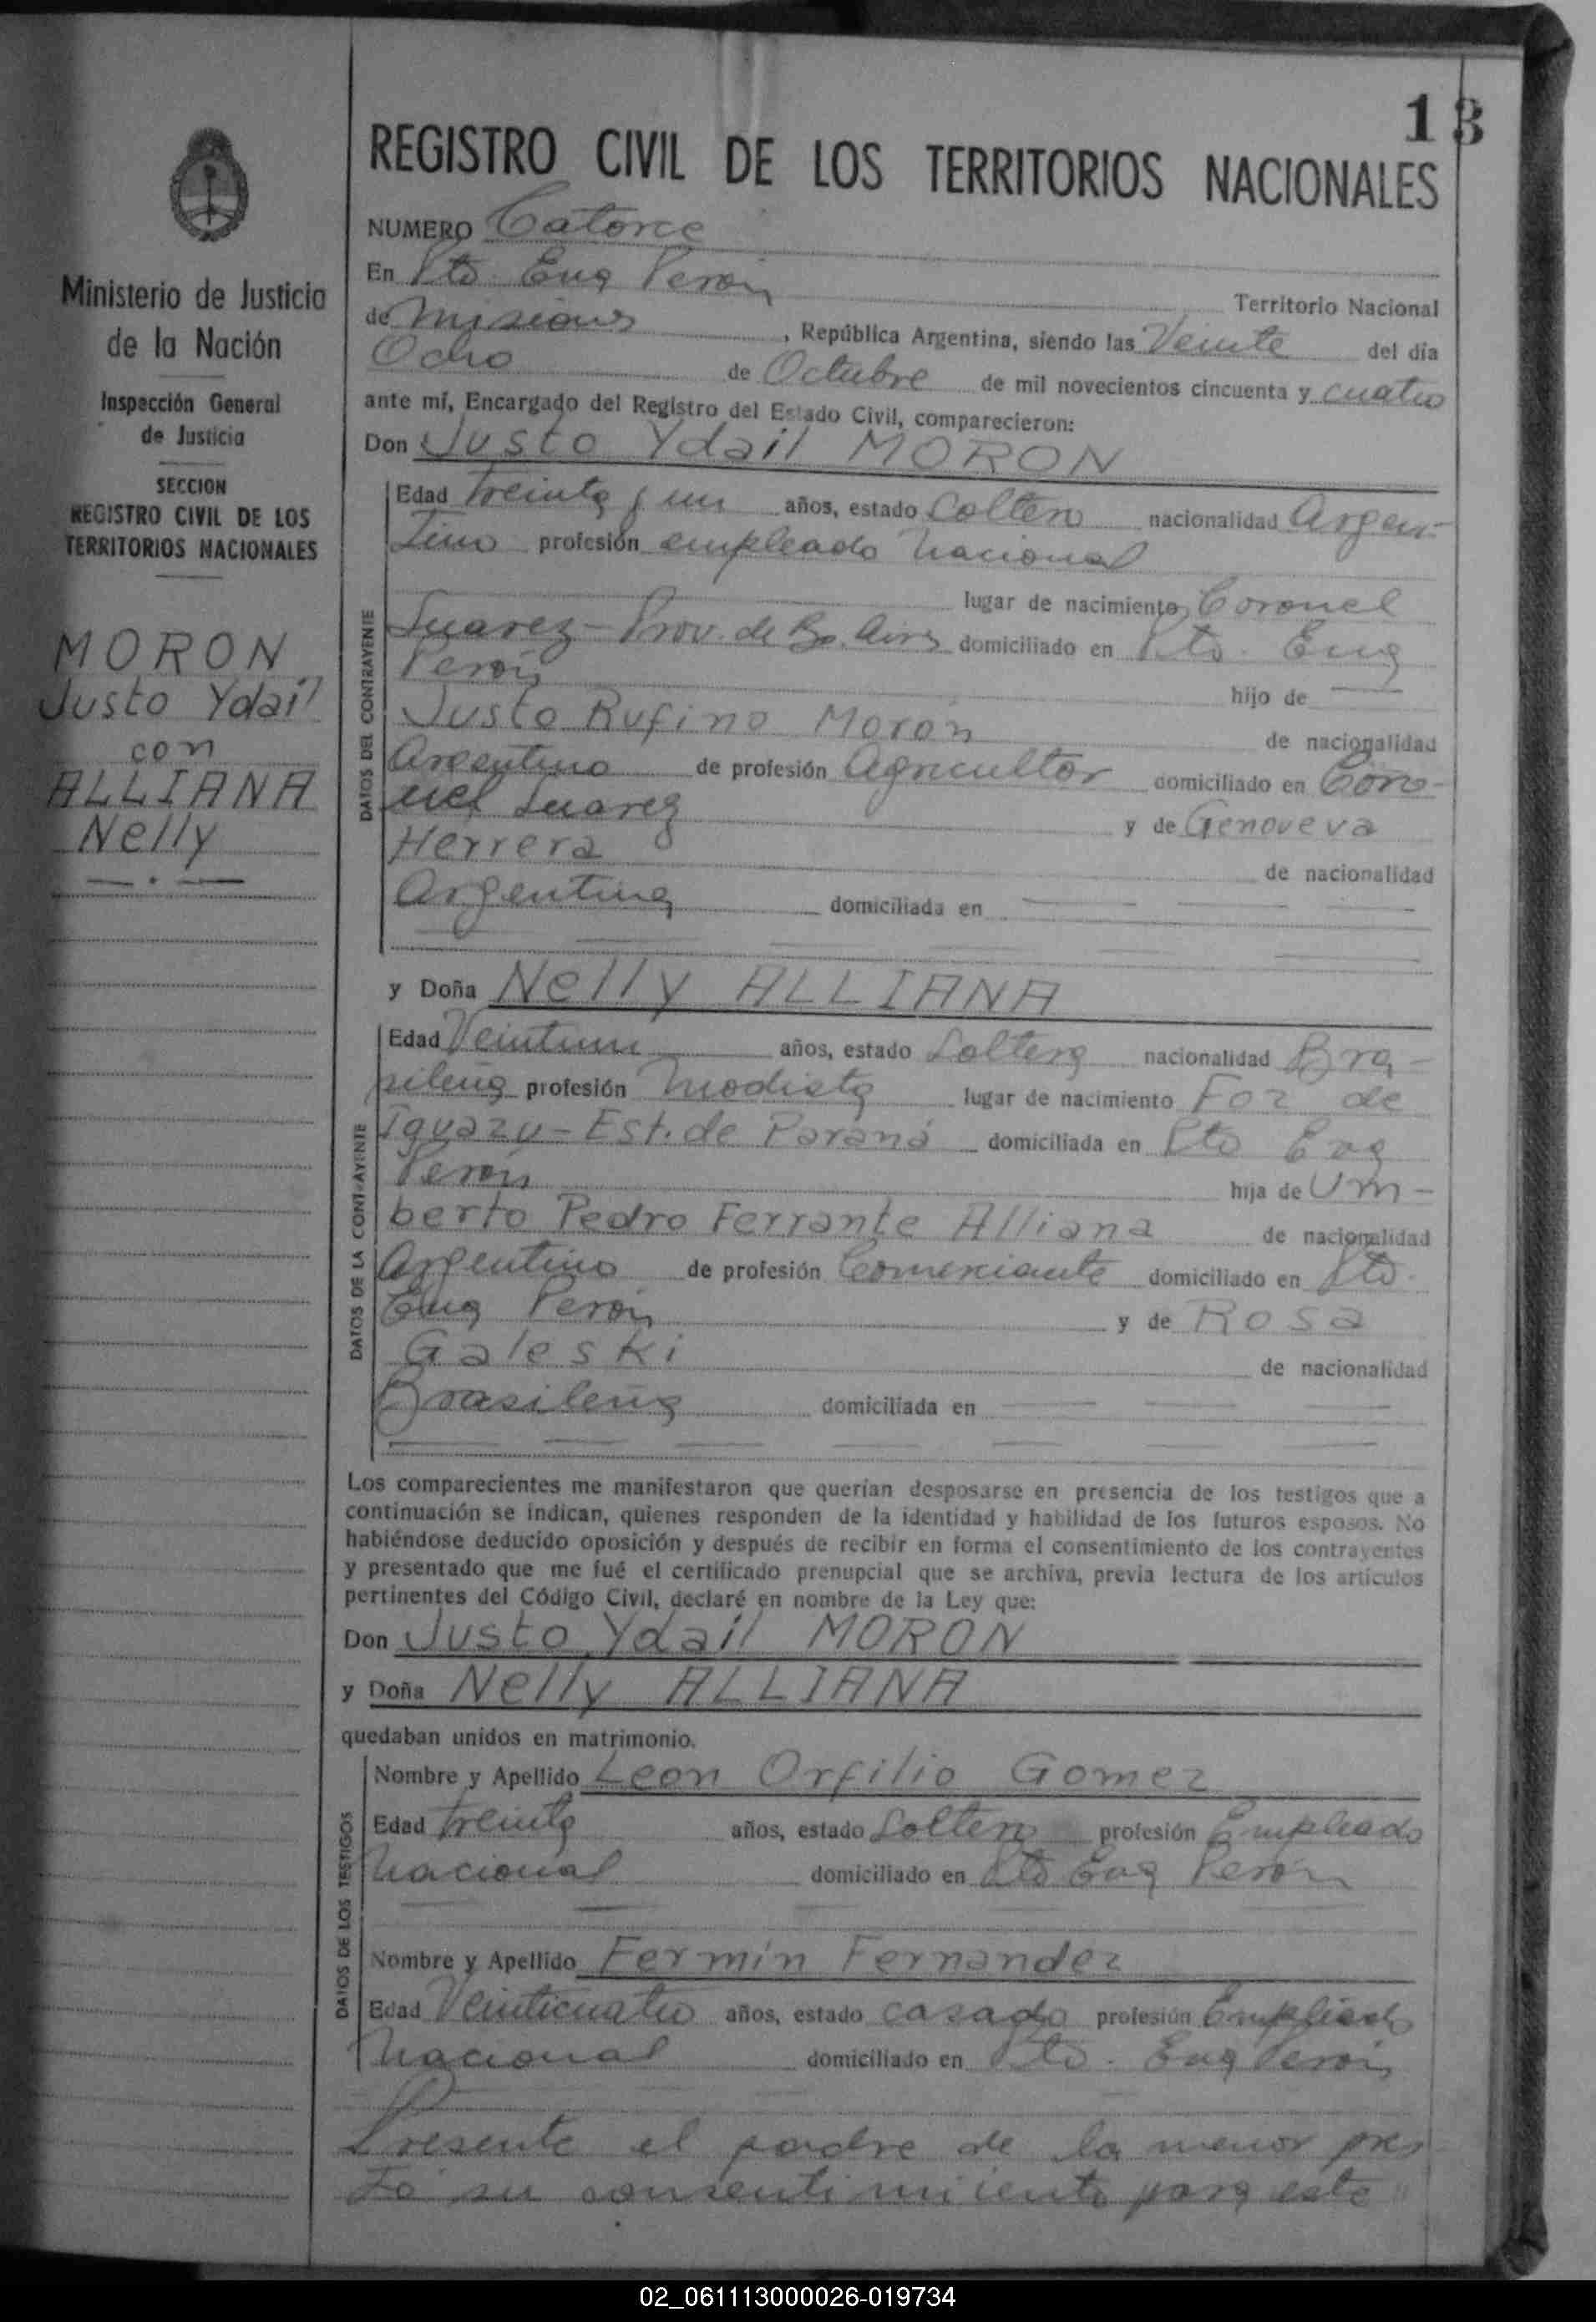 13
REGISTRO CIVIL DE LOS TERRITORIOS NACIONALES
Ministerio de Justicia
de la Nación
Inspección General
de Justicia
SECCION
REGISTRO CIVIL DE LOS
TERRITORIOS NACIONALES
MORON
Justo Ydail
con
ALLIANA
Nelly
NUMERO Catorce
En Pto. Eva Perón Territorio Nacional
de Misiones, República Argentina, siendo las Veinte del día
Ocho de Octubre de mil novecientos cincuenta y cuatro
ante mí, Encargado del Registro del Estado Civil, comparecieron:
Don Justo Ydail MORON
DATOS DEL CONTRAYENTE
Edad Treinta y un años, estado Soltero nacionalidad Argen-
tino profesión empleado nacional
lugar de nacimiento Coronel
Suarez - Prov. de Bs. Aires domiciliado en Pto. Eva
Perón hijo de
Justo Rufino Morón de nacionalidad
Argentino de profesión Agricultor domiciliado en Coro-
nel Suarez y de Genoveva
Herrera de nacionalidad
Argentina domiciliada en
y Doña Nelly ALLIANA
DATOS DE LA CONTRAYENTE
Edad Veintiun años, estado Soltera nacionalidad Bra-
sileña profesión Modista lugar de nacimiento Foz de
Iguazu - Est. de Paraná domiciliada en Pto Eva
Perón hija de Um-
berto Pedro Ferrante Alliana de nacionalidad
Argentino de profesión Comerciante domiciliado en Pto.
Eva Perón y de Rosa
Galeski de nacionalidad
Brasileña domiciliada en
Los comparecientes me manifestaron que querían desposarse en presencia de los testigos que a
continuación se indican, quienes responden de la identidad y habilidad de los futuros esposos. No
habiéndose deducido oposición y después de recibir en forma el consentimiento de los contrayentes
y presentado que me fué el certificado prenupcial que se archiva, previa lectura de los artículos
pertinentes del Código Civil, declaré en nombre de la Ley que:
Don Justo Ydail MORON
y Doña Nelly ALLIANA
quedaban unidos en matrimonio.
DATOS DE LOS TESTIGOS
Nombre y Apellido Leon Orfilio Gomez
Edad Treinta años, estado Soltero profesión Empleado
Nacional domiciliado en Pto Eva Perón
Nombre y Apellido Fermín Fernandez
Edad Veinticuatro años, estado casado profesión Empleado
Nacional domiciliado en Pto. Eva Perón
Presente el padre de la menor pres
tó su consentimiento para este
02_061113000026-019734